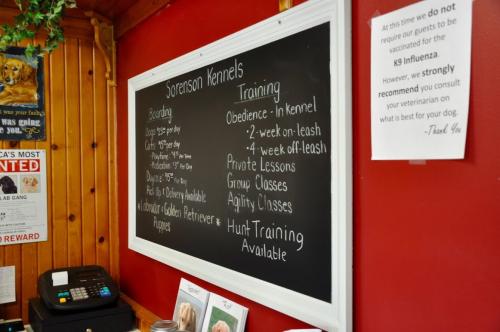 was going
you.
CA'S MOST
WANTED
LAB GANG
REWARD
Sorenson Kennels
Boarding
Dogs per day
Cats per day
- Playtime per time
- Medication per
Daycare per day
Pick Up & Delivery Available
*Labrador & Golden Retriever*
Puppies
Training
Obedience - In Kennel
- 2 week on-leash
- 4 week off-leash
Private Lessons
Group Classes
Agility Classes
Hunt Training
Available
At this time we do not
require our guests to be
vaccinated for the
K9 Influenza.
However, we strongly
recommend you consult
your veterinarian on
what is best for your dog.
-Thank You